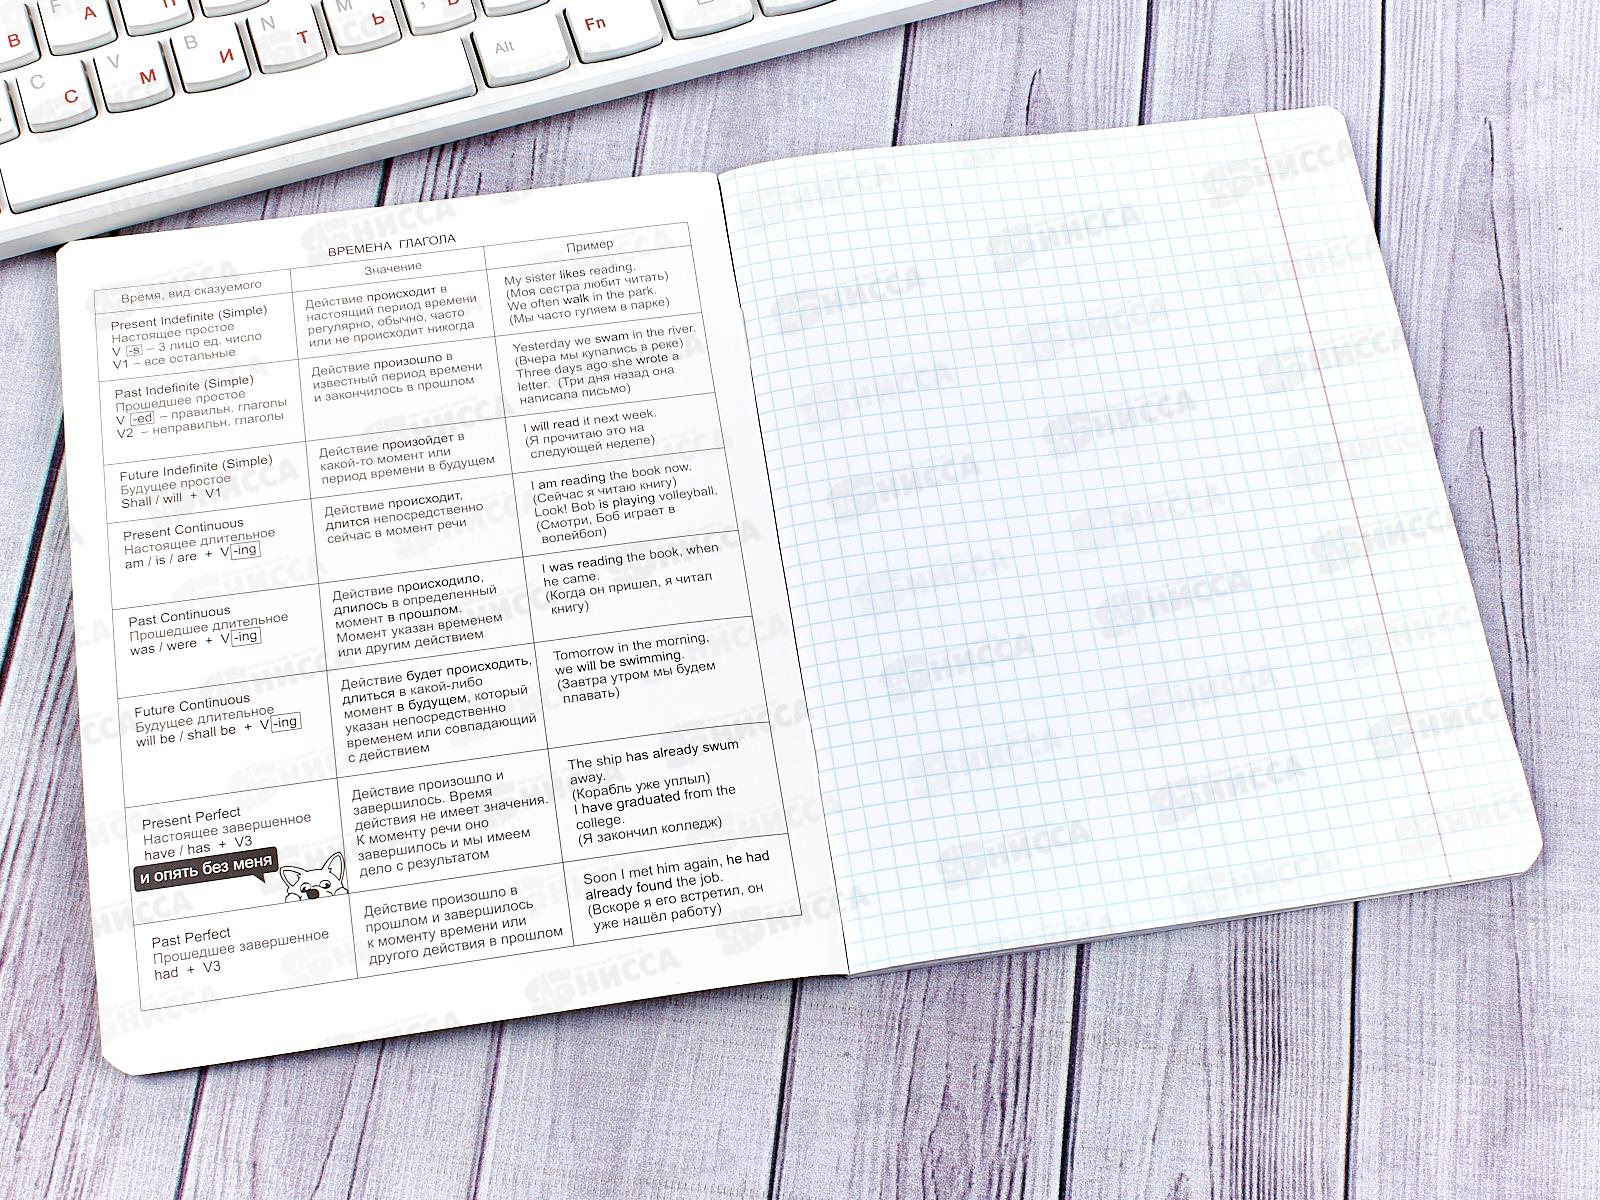 В F А П N Ь
С С V М B И Т Alt Fn
ВРЕМЕНА ГЛАГОЛА
Время, вид сказуемого
Значение
Пример
Present Indefinite (Simple)
Настоящее простое
V -s – 3 лицо ед. число
V1 – все остальные
Действие происходит в
настоящий период времени
регулярно, обычно, часто
или не происходит никогда
My sister likes reading.
(Моя сестра любит читать)
We often walk in the park.
(Мы часто гуляем в парке)
Past Indefinite (Simple)
Прошедшее простое
V -ed – правильн. глаголы
V2 – неправильн. глаголы
Действие произошло в
известный период времени
и закончилось в прошлом
Yesterday we swam in the river.
(Вчера мы купались в реке)
Three days ago she wrote a
letter. (Три дня назад она
написала письмо)
Future Indefinite (Simple)
Будущее простое
Shall / will + V1
Действие произойдет в
какой-то момент или
период времени в будущем
I will read it next week.
(Я прочитаю это на
следующей неделе)
Present Continuous
Настоящее длительное
am / is / are + V -ing
Действие происходит,
длится непосредственно
сейчас в момент речи
I am reading the book now.
(Сейчас я читаю книгу)
Look! Bob is playing volleyball.
(Смотри, Боб играет в
волейбол)
Past Continuous
Прошедшее длительное
was / were + V -ing
Действие происходило,
длилось в определенный
момент в прошлом.
Момент указан временем
или другим действием
I was reading the book, when
he came.
(Когда он пришел, я читал
книгу)
Future Continuous
Будущее длительное
will be / shall be + V -ing
Действие будет происходить,
длиться в какой-либо
момент в будущем, который
указан непосредственно
временем или совпадающий
с действием
Tomorrow in the morning,
we will be swimming.
(Завтра утром мы будем
плавать)
Present Perfect
Настоящее завершенное
have / has + V3
и опять без меня
Действие произошло и
завершилось. Время
действия не имеет значения.
К моменту речи оно
завершилось и мы имеем
дело с результатом
The ship has already swum
away.
(Корабль уже уплыл)
I have graduated from the
college.
(Я закончил колледж)
Past Perfect
Прошедшее завершенное
had + V3
Действие произошло в
прошлом и завершилось
к моменту времени или
другого действия в прошлом
Soon I met him again, he had
already found the job.
(Вскоре я его встретил, он
уже нашёл работу)
НИССА